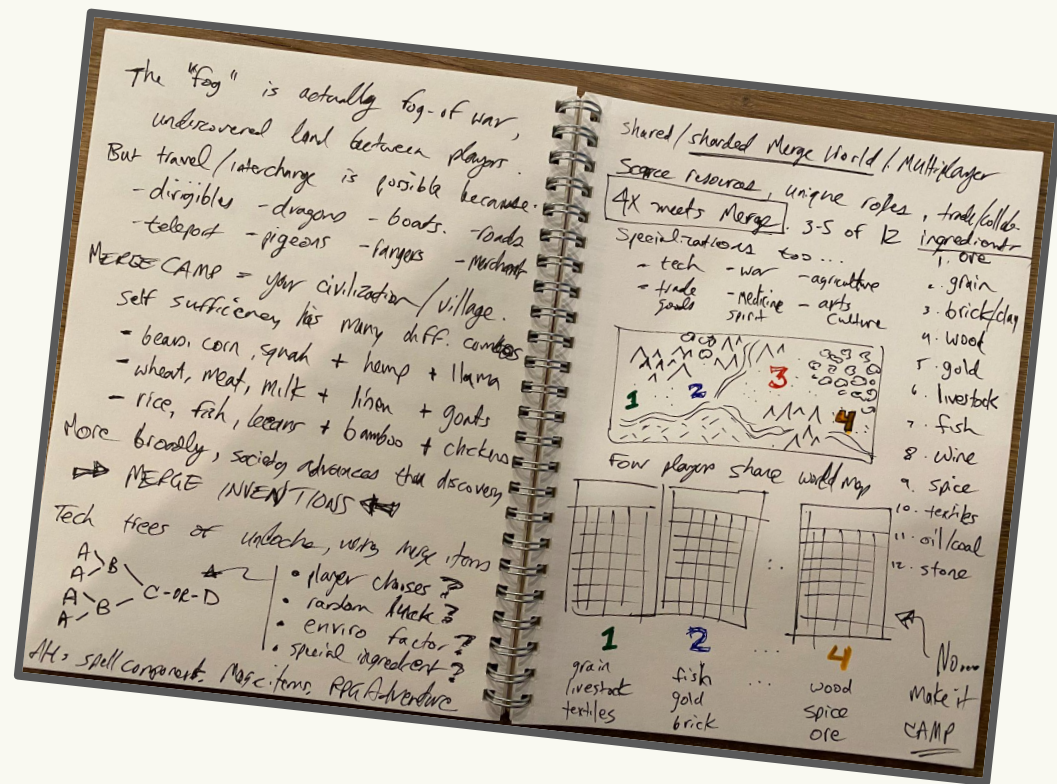 The "fog" is actually fog-of war,
undiscovered land between players.
But travel/interchange is possible because.
- dirigibles - dragons - boats. - roads
- teleport - pigeons - rangers - merchant
MERGE CAMP = your civilization/village.
self sufficiency has many diff. combos
- beans, corn, squah + hemp + llama
- wheat, meat, milk + linen + goats
- rice, fish, + bamboo + chckns
More broadly, society advances thru discovery
⇒ MERGE INVENTIONS ⇐
Tech trees of unlocks, using merge items
A
A B
C-OR-D
A B
A
• player chooses?
• random luck?
• enviro factor?
• special ingredient?
Alt: spell component, Magic items, RPG Adventure
shared/sharded Merge World/Multiplayer
Scarce resources, unique roles, trade/collab-
4X meets Merge. 3-5 of 12 ingredients
Specializations too...
- tech - war - agriculture
- trade goods - medicine spirit - arts culture
1. ore
2. grain
3. brick/clay
4. wood
5. gold
6. livestock
7. fish
8. wine
9. spice
10. textiles
11. oil/coal
12. stone
1 2 3 4
Four players share world map
1 2 ... 4
grain fish ... wood
livestock gold spice
textiles brick ore
No...
Make it
CAMP